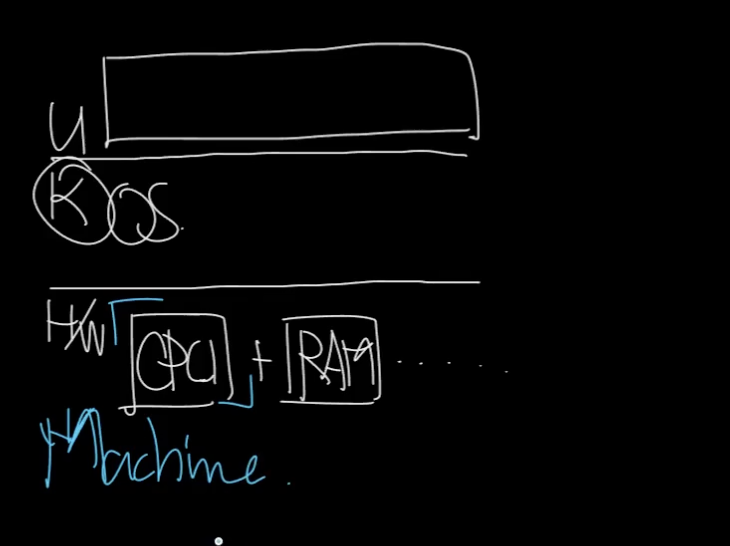 U
K OS.
H/W CPU + RAM ......
Machine.